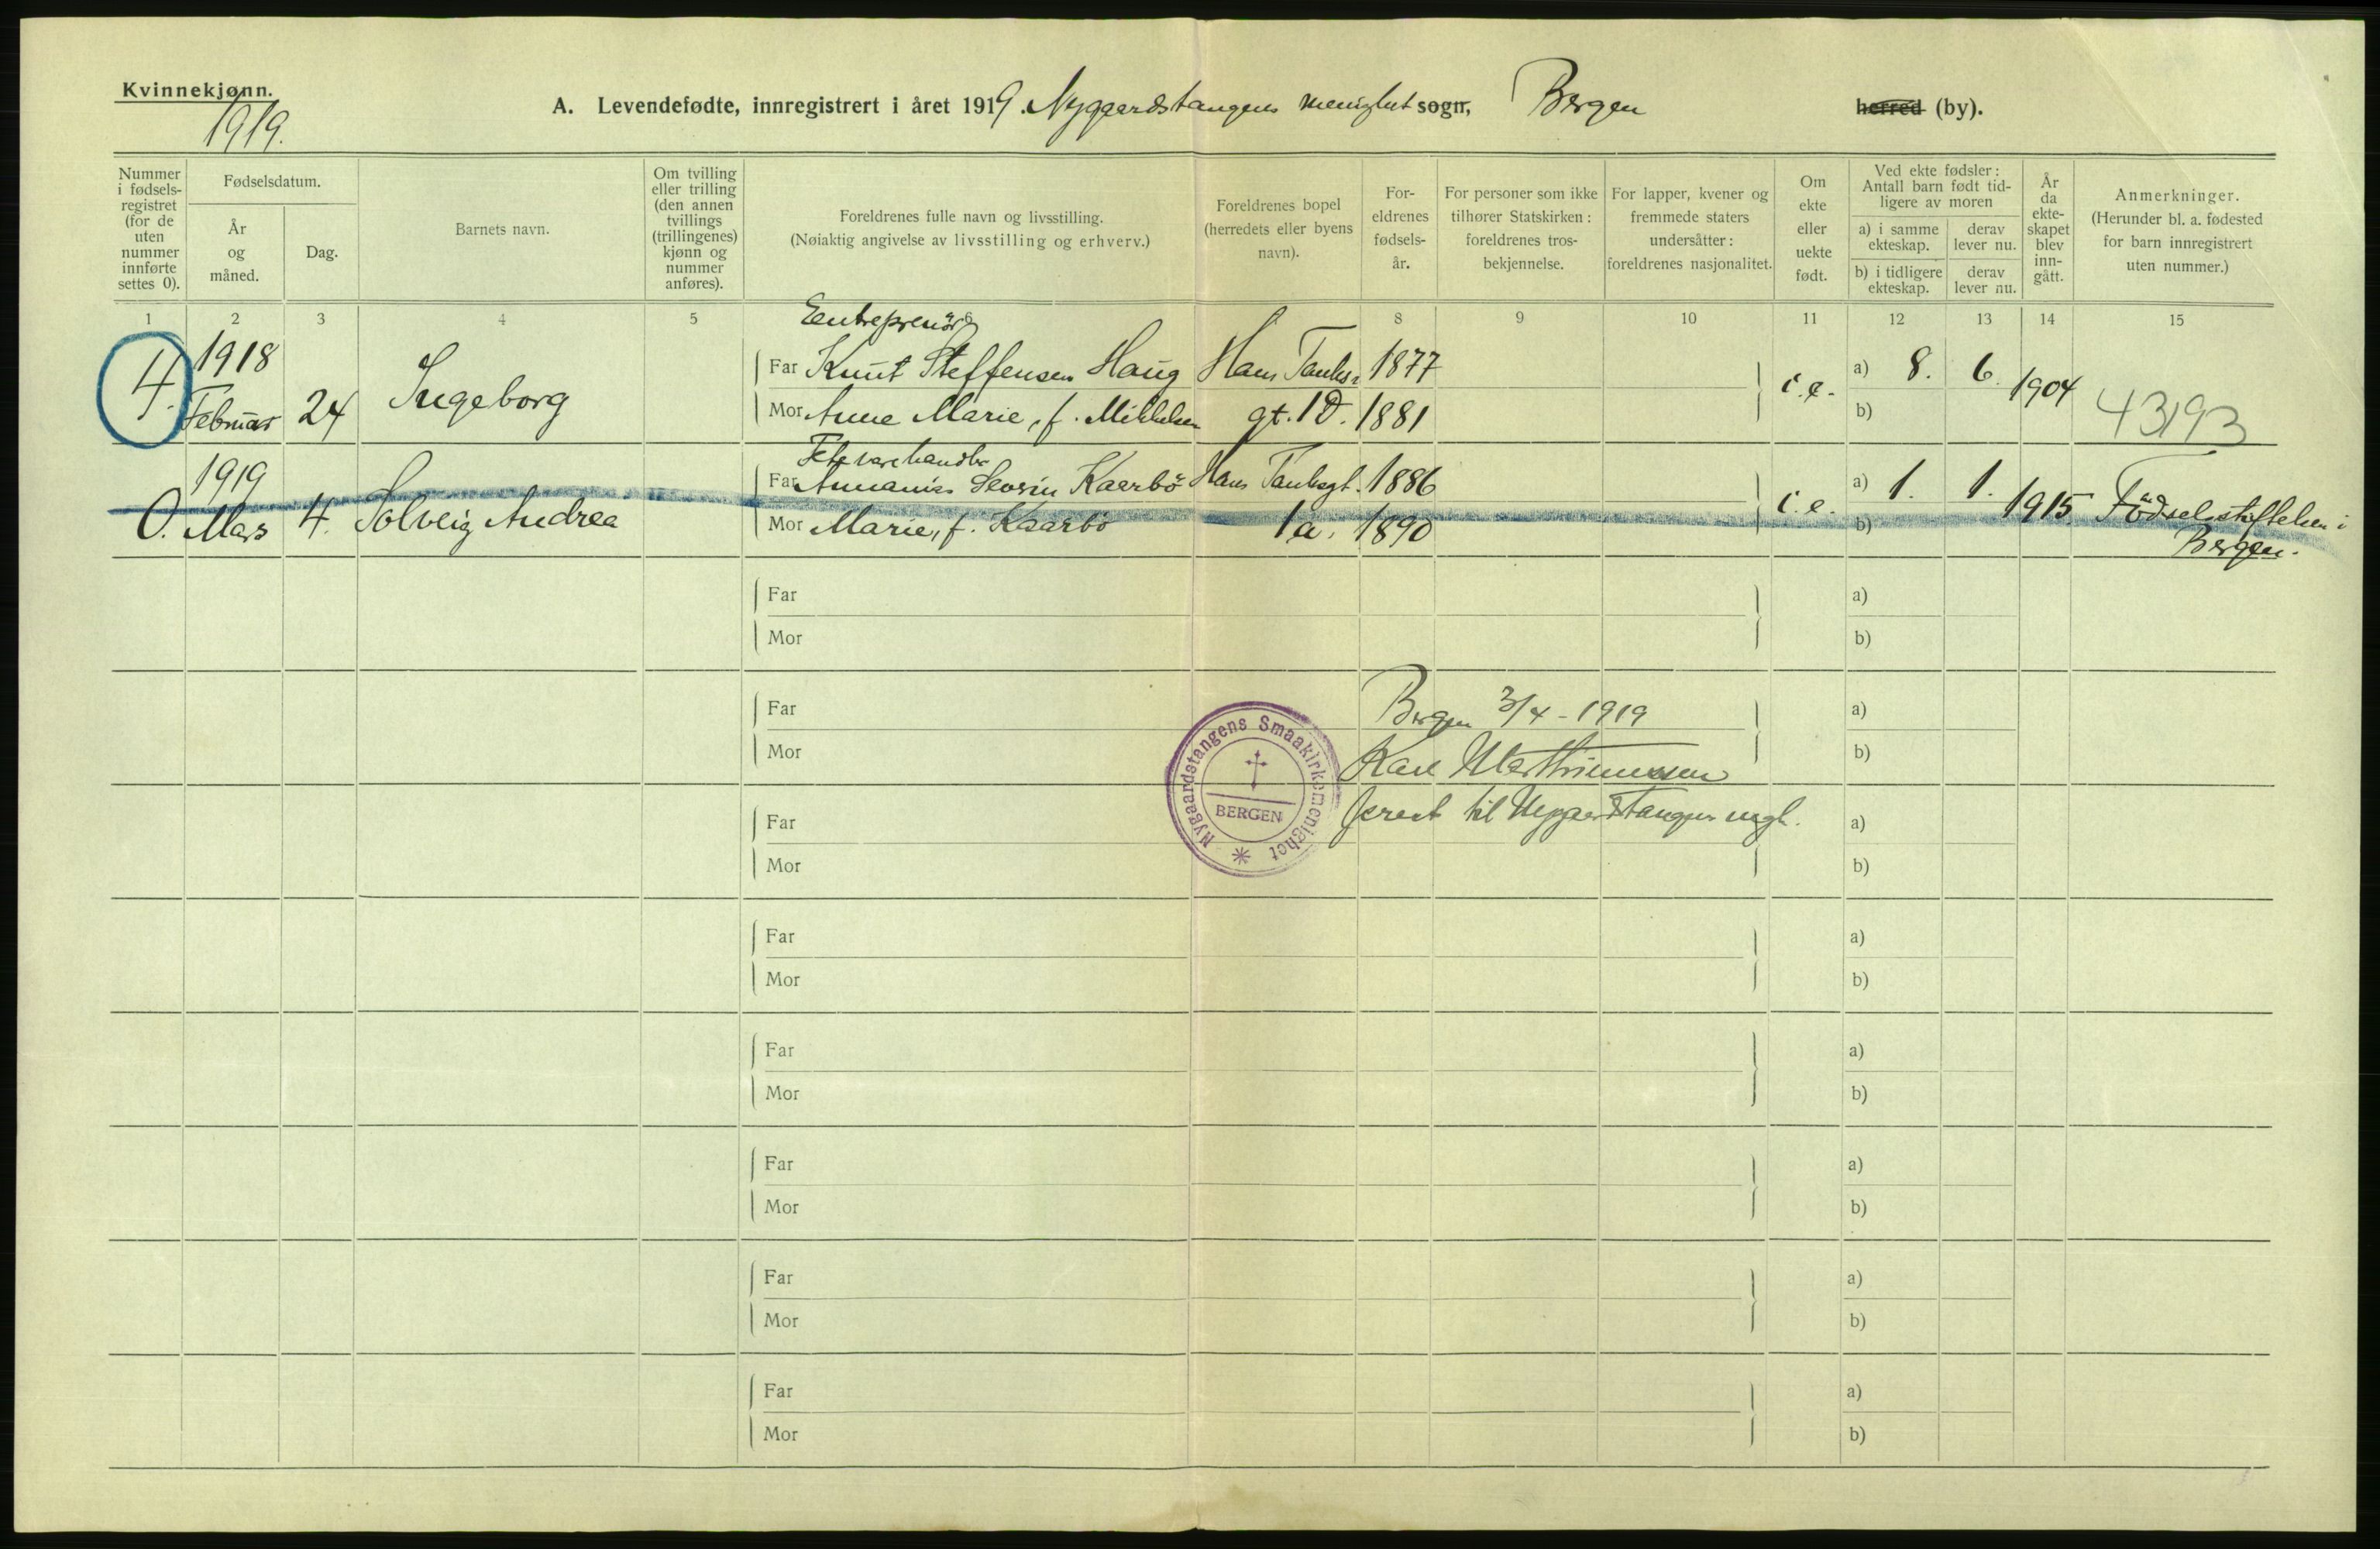 Kvinnekjønn.
1919.
A. Levendefødte, innregistrert i året 1919. Nyggaardstangens menighet sogn, Bergen herred (by).
Nummer i fødsels-registret (for de uten nummer innførte settes 0).
Fødselsdatum.
År og måned.
Dag.
Barnets navn.
Om tvilling eller trilling (den annen tvillings (trillingenes) kjønn og nummer anføres).
Foreldrenes fulle navn og livsstilling.
(Nøiaktig angivelse av livsstilling og erhverv.)
Foreldrenes bopel (herredets eller byens navn).
For-eldrenes fødsels-år.
For personer som ikke tilhører Statskirken: foreldrenes tros-bekjennelse.
For lapper, kvener og fremmede staters undersåtter: foreldrenes nasjonalitet.
Om ekte eller uekte født.
Ved ekte fødsler: Antall barn født tid-ligere av moren
a) i samme ekteskap.
derav lever nu.
b) i tidligere ekteskap.
derav lever nu.
År da ekte-skapet blev inn-gått.
Anmerkninger.
(Herunder bl. a. fødested for barn innregistrert uten nummer.)
1 2 3 4 5 6 8 9 10 11 12 13 14 15
Eentreprenör
4. 1918 Februar 24 Ingeborg
Far Knut Steffensen Haug Hans Tanks 1877
Mor Anne Marie, f. Mikkelsen gt. 1D. 1881
i.e. a) 8. 6. 1904
b)
43193
Fetevarehandler
0. 1919 Mars 4. Solveig Andrea
Far Severin Kaarbö Hans Tanksgt. 1886
Mor Marie, f. Kaarbö 1a. 1890
i.e. a) 1. 1. 1915 Födselsstiftelsen i
b)
Bergen.
Far a)
Mor b)
Far Bergen 3/4 - 1919 a)
Mor b)
Nygaardstangens Smaakirkemenighet
BERGEN
Karl Marthinussen
Far til Nygaardstangen mgh. a)
Mor b)
Far a)
Mor b)
Far a)
Mor b)
Far a)
Mor b)
Far a)
Mor b)
Far a)
Mor b)